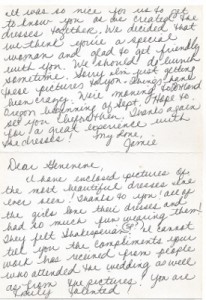 all was so nice for us to get
to know you as we created the
dresses together. We decided that
we think you're a special
woman and glad to get friendly
with you. We should do lunch
sometime. Sorry I'm just getting
these pictures to you. Things have
been crazy. We're moving to
Oregon beginning of Sept. Hope to
see you before then. Thanks again
for a great experience with
the dresses!
My love,
Jamie
Dear Genevieve,
I have enclosed pictures of
the most beautiful dresses I've
ever seen! Thanks to you all of
the girls love their dresses and
had so much fun wearing them!
They felt Shakespearian(?) I cannot
tell you the compliments your
work has received from people
who attended the wedding as well
as from the pictures. You are
truly talented